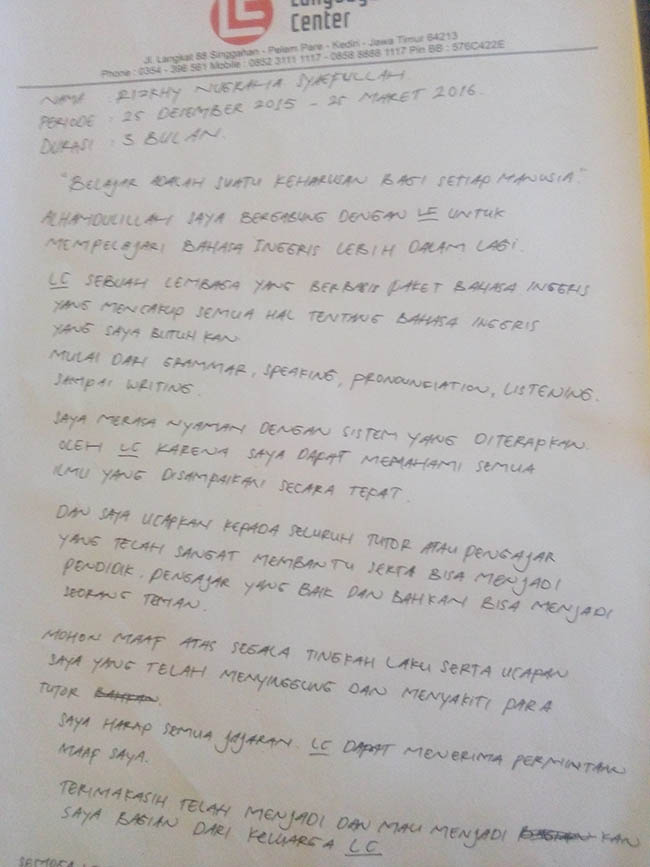 Language
Center
Jl. Langkat 88 Singgahan - Pelem Pare - Kediri - Jawa Timur 64213
Phone : 0354 - 396 561 Mobile : 0852 3111 1117 - 0858 8888 1117 Pin BB : 576C422E
NAMA : RIZKHY NUGRAHA SYAEFULLAH
PERIODE : 25 DESEMBER 2015 - 25 MARET 2016.
DURASI : 3 BULAN.
"BELAJAR ADALAH SUATU KEHARUSAN BAGI SETIAP MANUSIA."
ALHAMDULILLAH SAYA BERGABUNG DENGAN LC UNTUK
MEMPELAJARI BAHASA INGGRIS LEBIH DALAM LAGI.
LC SEBUAH LEMBAGA YANG BERBASIS PAKET BAHASA INGGRIS
YANG MENCAKUP SEMUA HAL TENTANG BAHASA INGGRIS
YANG SAYA BUTUHKAN.
MULAI DARI GRAMMAR, SPEAKING, PRONOUNCIATION, LISTENING.
SAMPAI WRITING.
SAYA MERASA NYAMAN DENGAN SISTEM YANG DITERAPKAN.
OLEH LC KARENA SAYA DAPAT MEMAHAMI SEMUA
ILMU YANG DISAMPAIKAN SECARA TEPAT.
DAN SAYA UCAPKAN KEPADA SELURUH TUTOR ATAU PENGAJAR
YANG TELAH SANGAT MEMBANTU SERTA BISA MENJADI
PENDIDIK. PENGAJAR YANG BAIK DAN BAHKAN BISA MENJADI
SEORANG TEMAN.
MOHON MAAF ATAS SEGALA TINGKAH LAKU SERTA UCAPAN
SAYA YANG TELAH MENYINGGUNG DAN MENYAKITI PARA
TUTOR BAHKAN.
SAYA HARAP SEMUA JAJARAN. LC DAPAT MENERIMA PERMINTAAN
MAAF SAYA.
TERIMAKASIH TELAH MENJADI DAN MAU MENJADI BAGIAN KAN
SAYA BAGIAN DARI KELUARGA LC